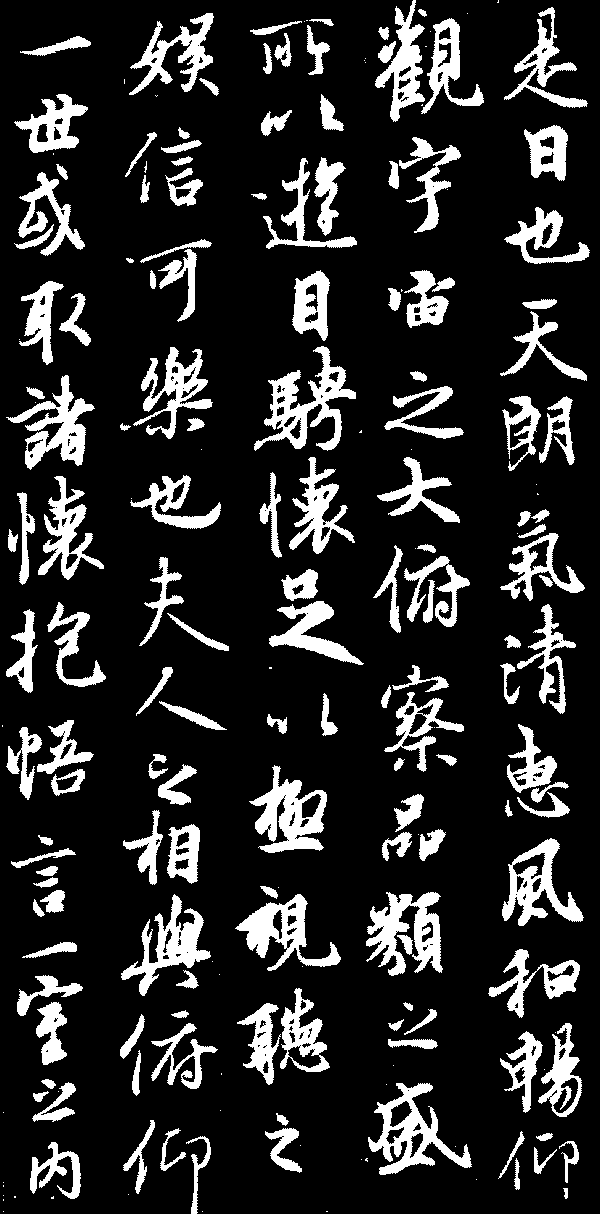 是日也天朗氣清惠風和暢仰
觀宇宙之大俯察品類之盛
所以遊目騁懷足以極視聽之
娛信可樂也夫人之相與俯仰
一世或取諸懷抱悟言一室之內